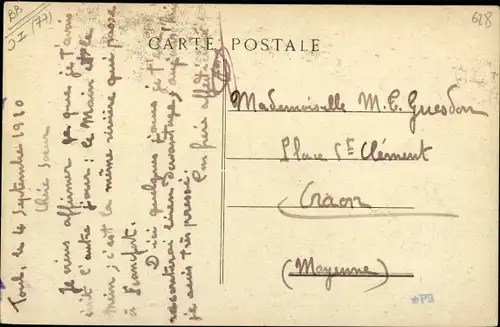 BB
OI (77)
628
CARTE POSTALE
Toul, le 4 Septembre 1920
Chère Soeur
Je viens affirmer ce que je t'avais
écrit l'autre jour : le Main et le
même rivière qui passe
à Francfort.
D'ici quelques jours je t'
raconterai bien davantage, aujourd'hui
je suis très pressé.
Ton frère affectionné
Mademoiselle M. C. Guesdon
Place St Clément
Craon
(Mayenne)
*PB